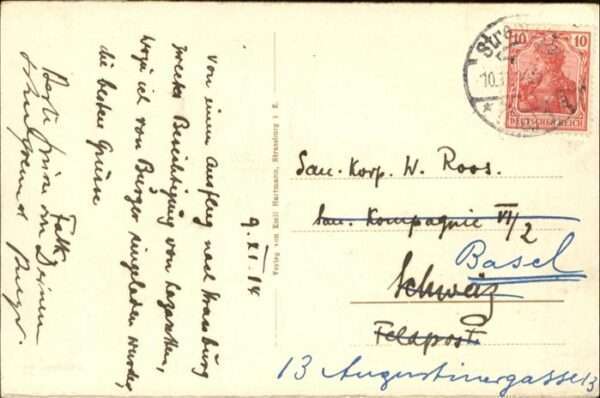 9. XI. 14
Von einem Ausflug nach Strassburg
zwecks Besichtigung von Lazaretten,
wozu ich von Bürger eingeladen wurde,
die besten Grüsse
Falk
Beste Grüsse von Deinem
Verlag von Emil Hartmann, Strassburg i. E.
Stra
10.1
10 10
DEUTSCHES REICH
San.-Korp. W. Roos.
San. Kompagnie VI/2
Basel
Schweiz
Feldpost.
13 Augustinergasse 13